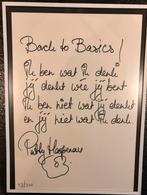 Back to Basics!
Ik ben wat ik denk
jij denkt wie jij bent
Ik ben niet wat jij denkt
en jij niet wat ik denk